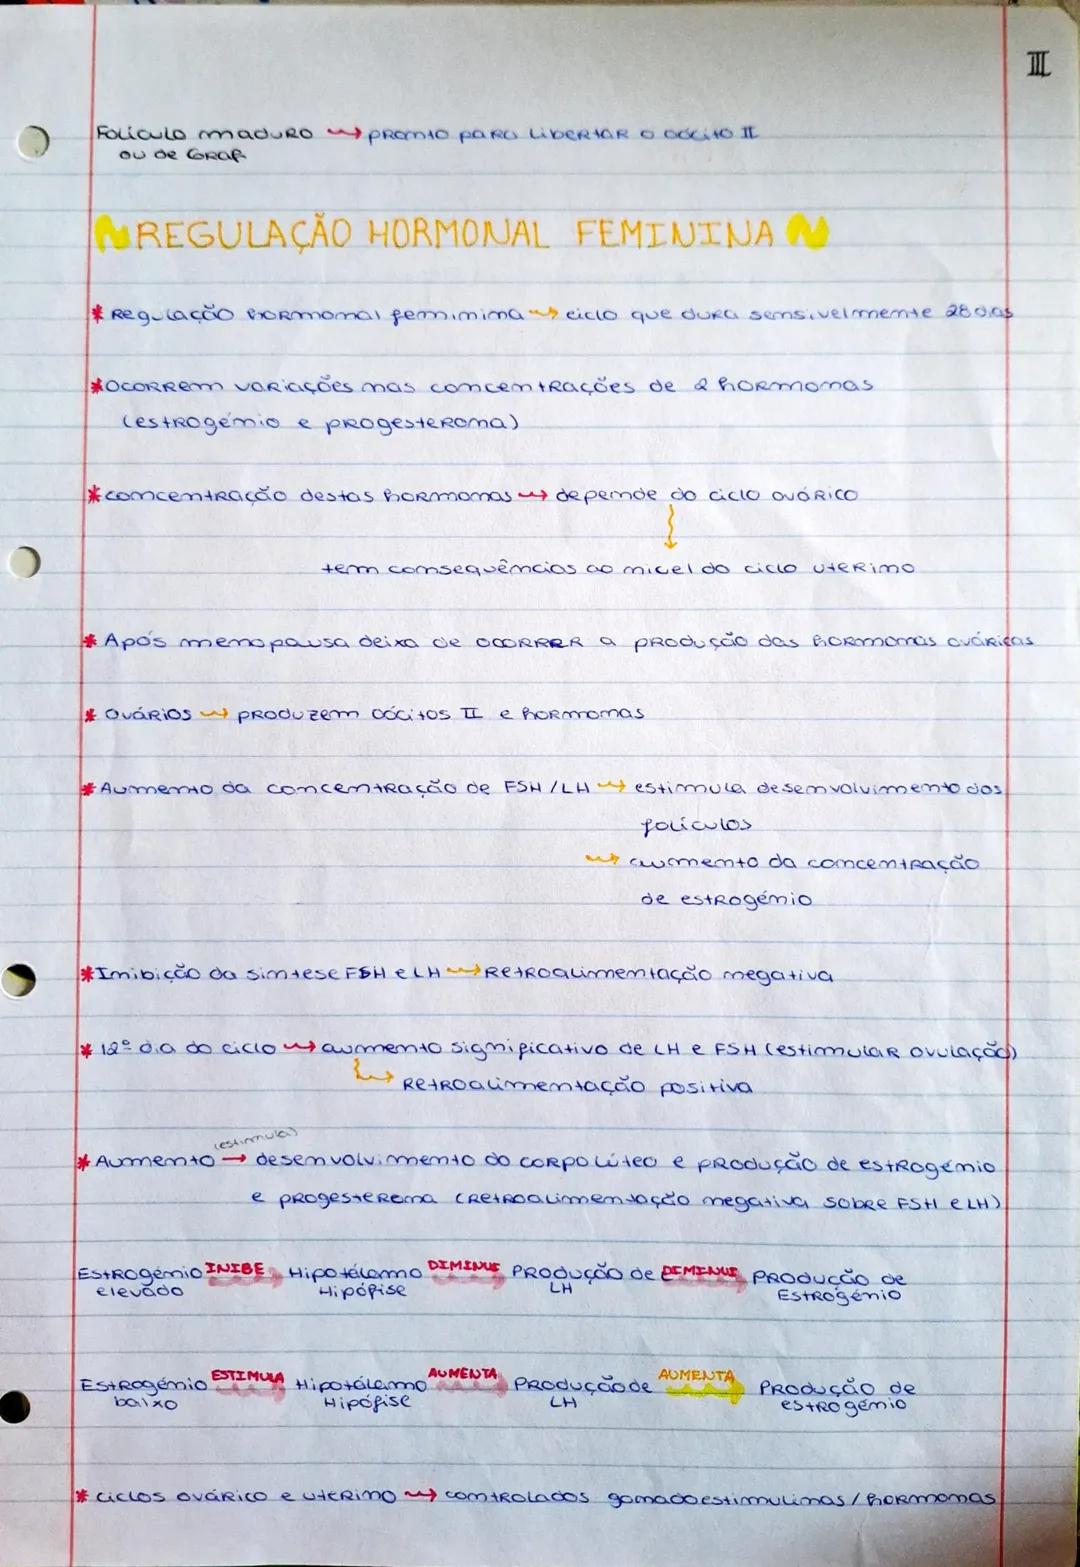 III
Folículo maduro → pronto para libertar o oócito II
ou de Graf
REGULAÇÃO HORMONAL FEMININA
* Regulação hormonal feminina → ciclo que dura sensivelmente 28 dias
* Ocorrem variações nas concentrações de 2 hormonas
(estrogénio e progesterona)
* concentração destas hormonas → depende do ciclo ovárico
↓
tem consequências ao nível do ciclo uterino
* Após menopausa deixa de ocorrer a produção das hormonas ováricas
* Ovários → produzem oócitos II e hormonas
* Aumento da concentração de FSH/LH → estimula desenvolvimento dos
folículos
→ aumento da concentração
de estrogénio
* Inibição da síntese FSH e LH → Retroalimentação negativa
* 12º dia do ciclo → aumento significativo de LH e FSH (estimular ovulação)
↳ Retroalimentação positiva
(estimula)
* Aumento → desenvolvimento do corpo lúteo e produção de estrogénio
e progesterona (retroalimentação negativa sobre FSH e LH)
Estrogénio INIBE Hipotálamo DIMINUI Produção de DIMINUI Produção de
elevado Hipófise LH Estrogénio
Estrogénio ESTIMULA Hipotálamo AUMENTA Produção de AUMENTA Produção de
baixo Hipófise LH estrogénio
* ciclos ovárico e uterino → controlados gonadoestimulinas / hormonas